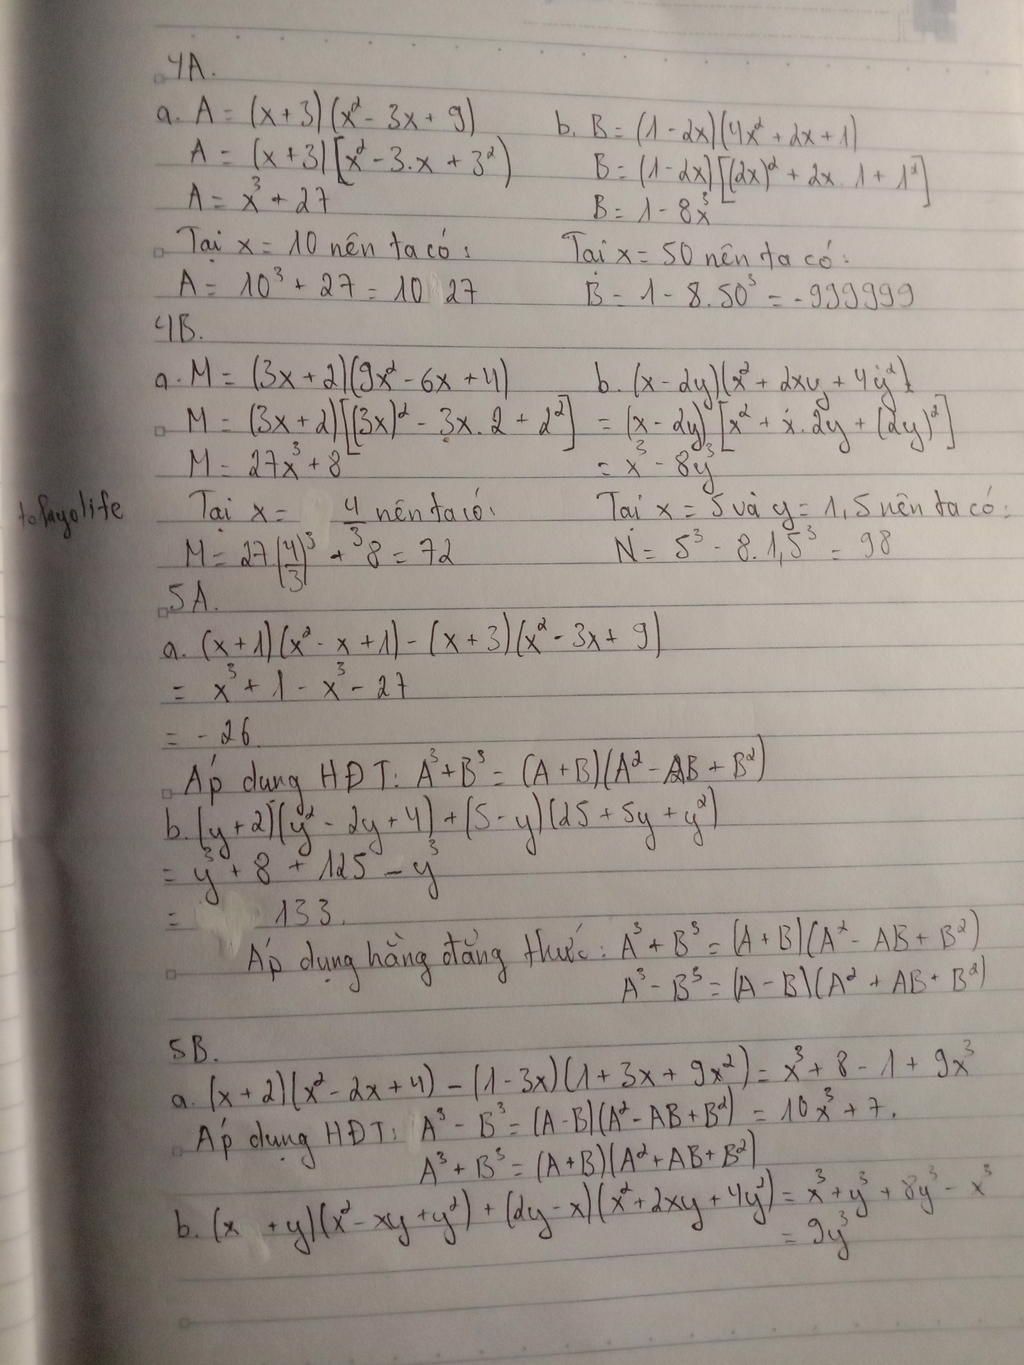 4A.
a. A = (x+3)(x² - 3x + 9)
A = (x+3)[x² - 3.x + 3²)
A = x³ + 27
Tại x = 10 nên ta có:
A = 10³ + 27 = 10 27
b. B = (1-2x)(4x² + 2x + 1)
B = (1-2x)[(2x)² + 2x.1 + 1²]
B = 1 - 8x³
Tai x = 50 nên ta có:
B = 1 - 8.50³ = -999999
4B.
a. M = (3x+2)(9x² - 6x + 4)
M = (3x+2)[(3x)² - 3x.2 + 2²]
M = 27x³ + 8
Tai x = 4/3 nên ta có:
M = 27(4/3)³ + 8 = 72
b. (x-2y)(x² + 2xy + 4y²)
= (x-2y)[x² + x.2y + (2y)²]
= x³ - 8y³
Tai x = 5 và y = 1,5 nên ta có:
N = 5³ - 8.1,5³ = 98
5A.
a. (x+1)(x² - x + 1) - (x+3)(x² - 3x + 9)
= x³ + 1 - x³ - 27
= - 26
Áp dung HĐT: A³+B³ = (A+B)(A² - AB + B²)
b. (y+2)(y² - 2y + 4) + (5-y)(25 + 5y + y²)
= y³ + 8 + 125 - y³
= 133.
Áp dụng hằng đẳng thức: A³ + B³ = (A+B)(A² - AB + B²)
A³ - B³ = (A-B)(A² + AB + B²)
5B.
a. (x+2)(x² - 2x + 4) - (1-3x)(1 + 3x + 9x²) = x³ + 8 - 1 + 9x³
= 10x³ + 7.
Áp dụng HĐT: A³ - B³ = (A-B)(A² - AB + B²)
A³ + B³ = (A+B)(A² + AB + B²)
b. (x + y)(x² - xy + y²) + (2y - x)(x² + 2xy + 4y²) = x³ + y³ + 8y³ - x³
= 9y³